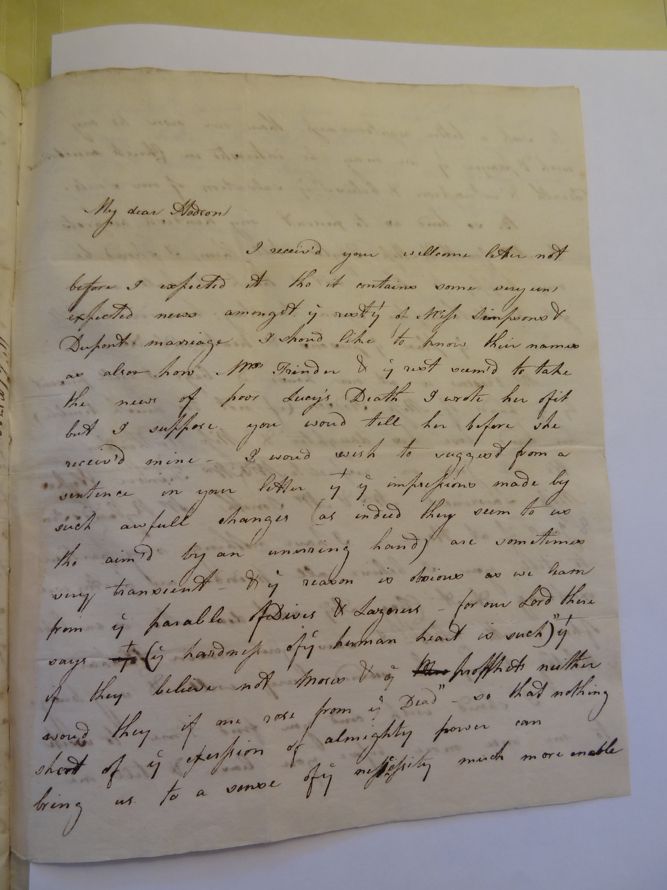 My dear Hodson
I receiv'd your wellcome letter not
before I expected it tho it contains some very un
expected news amongst ye rest yt of Miss Simpsons &
Dupont marriage I shoud like to know their names
as also how Mrs Trinder & ye rest seem'd to take
the news of poor Lucy's Death I wrote her of it
but I suppose you woud tell her before she
receiv'd mine - I woud wish to suggest from a
sentence in your letter yt ye impressions made by
such awfull changes (as indeed they seem to us
tho aim'd by an unerring hand) are sometimes
very transient - & ye reason is obvious as we learn
from ye parable of Dives & Lazerus - for our Lord there
says (ye hardness of ye human heart is such) "yt
if they believe not Moses & ye prophhets neither
woud they if one rose from ye Dead" - so that nothing
short of ye exersion of almighty power can
bring us to a sense of ye nessessity much more enable